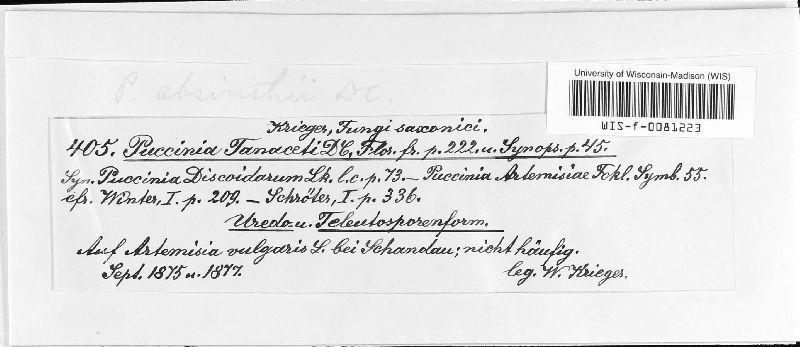 P. absinthii DC.
University of Wisconsin-Madison (WIS)
WIS-f-0081223
Krieger, Fungi saxonici.
405. Puccinia Tanaceti DC, Flor. fr. p. 222. u. Synops. p. 45.
Syn. Puccinia Discoidarum Lk. l. c. p. 73. — Puccinia Artemisiae Fckl. Symb. 55.
cfr. Winter, I. p. 209. — Schröter, I. p. 336.
Uredo- u. Teleutosporenform.
Auf Artemisia vulgaris L. bei Schandau; nicht häufig.
Sept. 1875 u. 1877.
leg. W. Krieger.